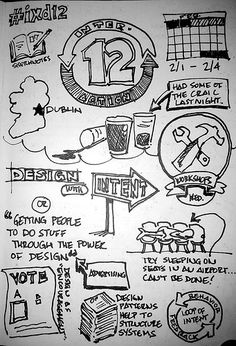 #ixd12
SKETCHNOTES
INTER-
12
ACTION
2/1 - 2/4
DUBLIN
HAD SOME OF
THE CRAIC
LAST NIGHT.
WORKSHOPS
WED.
DESIGN
WITH
INTENT
OR
"GETTING PEOPLE
TO DO STUFF
THROUGH THE POWER
OF DESIGN"
TRY SLEEPING ON
SEATS IN AN AIRPORT...
CAN'T BE DONE!
VOTE
A
B
DESIGN
ADVERTISING
DESIGN
PATTERNS
HELP TO
STRUCTURE
SYSTEMS
BEHAVIOR
LOOP OF
INTENT
FEEDBACK